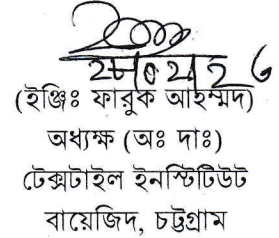 (ইঞ্জিঃ ফারুক আহম্মদ)
অধ্যক্ষ (অঃ দাঃ)
টেক্সটাইল ইনস্টিটিউট
বায়েজিদ, চট্টগ্রাম